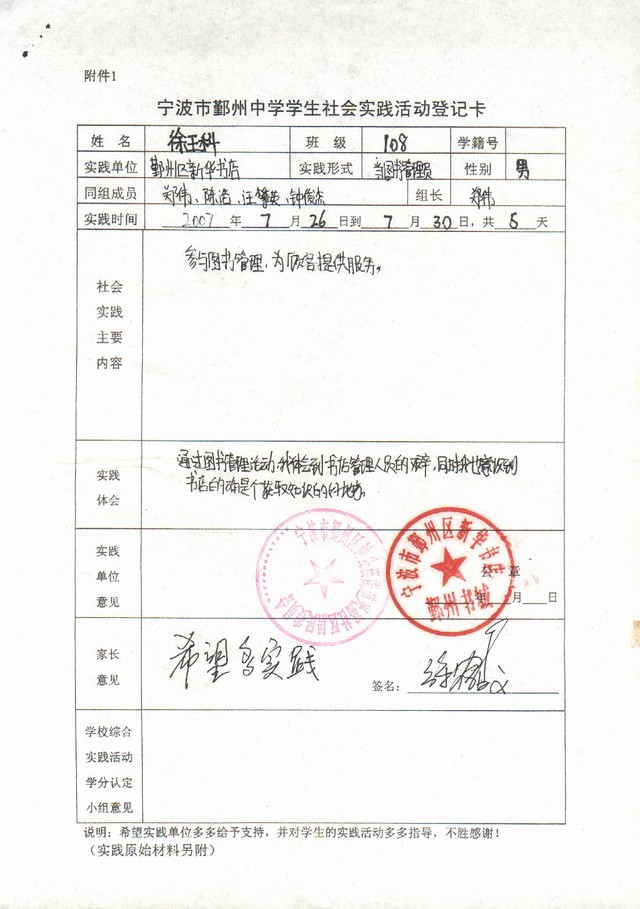 附件1
宁波市鄞州中学学生社会实践活动登记卡
姓 名 徐王科 班 级 108 学籍号
实践单位 鄞州区新华书店 实践形式 当图书管理员 性别 男
同组成员 郑伟、陈浩、汪 钟俊杰 组长 郑伟
实践时间 2007 年 7 月 26 日到 7 月 30 日,共 5 天
社会实践主要内容
参与图书管理,为顾客提供服务。
实践体会
通过图书管理活动,我体会到书店管理人员的艰辛,同时我也意识到
书店的确是个获取知识的好地方。
实践单位意见
宁波市鄞州区新华书店
鄞州书城
公 章
年 月 日
家长意见
希望多实践
签名: 徐
学校综合实践活动学分认定小组意见
说明:希望实践单位多多给予支持,并对学生的实践活动多多指导,不胜感谢!
(实践原始材料另附)